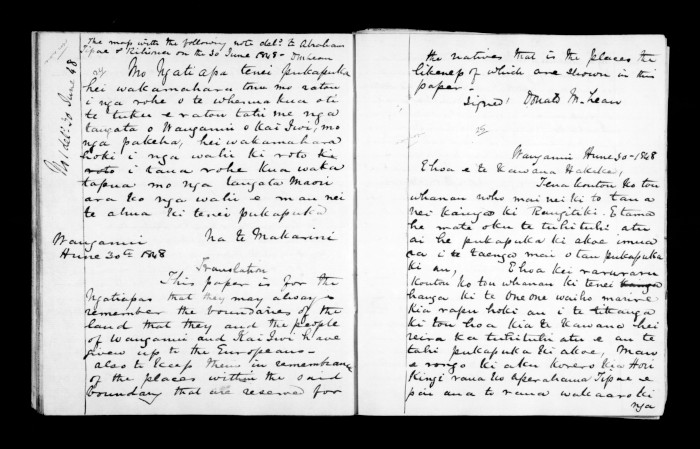 The map with the following note deld. to Abraham
Tipae & Kilioura on the 30 June 1848 - DMcLean
No. 1 deld. 30 June 48
Mo Ngatiapa tenei pukapuka
hei wakamahara tonu mo ratou
i nga rohe o te whenua kua oti
te tuku e ratou tatu me nga
tangata o Wanganui o Kai Iwi, mo
nga pakeha, hei wakamahara
hoki i nga wahi ki roto
roto i taua rohe kua waka
tapua mo nga tangata Maori
ara ko nga wahi e mau nei
te ahua ki tenei pukapuka
Na te Makarini
Wanganui
June 30th 1848
Translation
This paper is for the
Ngatiapas that they may always
remember the boundaries of the
land that they and the people
of Wanganui and Kai Iwi have
given up to the Europeans -
also to keep them in remembrance
of the places within the said
boundary that are reserved for
the natives that is the places the
likeness of which are shown in this
paper -
Signed, Donald McLean
Wanganui June 30 - 1848
Ehoa e te Kawana Hakeke,
Tena koutou ko tou
whanau noho mai nei ki to tana
nei kainga ki Rangitiki. Etama
he mate oku te tuhituhi atu
ai he pukapuka ki akoe imua
ra i te taenga mai o tau pukapuka
ki au, Ehoa kei raruraru
koutou ko tou whanau ki tenei
hanga ki te oneone waiho marire
Kia rapu hoki au i te titanga
ki tou hoa Kia te Kawana hei
reira ka tuhituhi atu e au te
tahi pukapuka ki akoe, Mau
e rongo ki aku korero kia Hori
Kingi raua ko Aperahama Tipae e
pai ana te raua wakaaro ki
nga